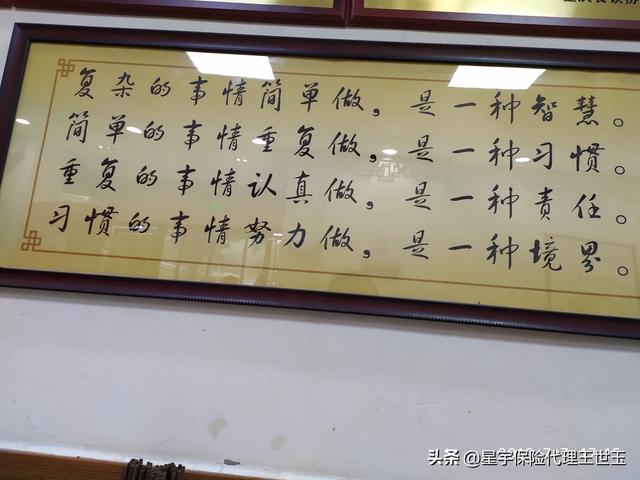 复杂的事情简单做，是一种智慧。
简单的事情重复做，是一种习惯。
重复的事情认真做，是一种责任。
习惯的事情努力做，是一种境界。
头条 @星宇保险代理王世玉